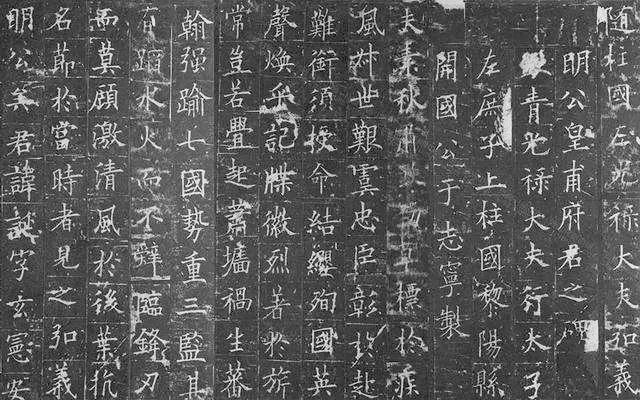 随柱國左光祿大夫弘義
明公皇甫府君之碑
青光祿大夫行太子
左庶子上柱國黎陽縣
開國公于志寧製
夫素秋肅勁標於疾
風叔世艱虞忠臣彰於赴
難銜須授命結纓殉國英
聲煥乎記牒徽烈著於旂
常豈若舋起蕭牆禍生蕃
翰强踰七國勢重三監其
有蹈水火而不辭臨鋒刃
而莫顧激清風於後葉抗
名節於當時者見之弘義
明公矣君諱誕字玄憲安